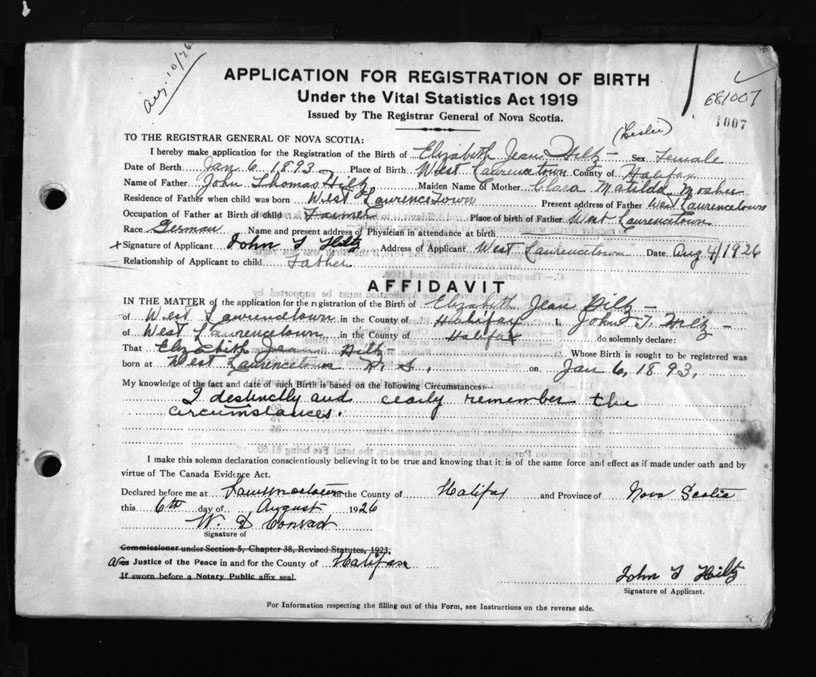 Aug. 10/26
APPLICATION FOR REGISTRATION OF BIRTH
Under the Vital Statistics Act 1919
Issued by The Registrar General of Nova Scotia.
681007
1007
TO THE REGISTRAR GENERAL OF NOVA SCOTIA:
(Leslie)
I hereby make application for the Registration of the Birth of Elizabeth Jean Hiltz - Sex Female
Date of Birth Jan 6, 1893 - Place of Birth West Lawrencetown County of Halifax
Name of Father John Thomas Hiltz Maiden Name of Mother Clara Matilda Mosher
Residence of Father when child was born West Lawrencetown Present address of Father West Lawrencetown
Occupation of Father at Birth of child Farmer Place of birth of Father West Lawrencetown
Race German Name and present address of Physician in attendance at birth
x Signature of Applicant John T Hiltz Address of Applicant West Lawrencetown Date Aug 4/1926
Relationship of Applicant to child Father
AFFIDAVIT
IN THE MATTER of the application for the registration of the Birth of Elizabeth Jean Hiltz -
of West Lawrencetown in the County of Halifax I, John T. Hiltz -
of West Lawrencetown in the County of Halifax do solemnly declare:
That Elizabeth Jean Hiltz Whose Birth is sought to be registered was
born at West Lawrencetown N. S. on Jan 6, 1893.
My knowledge of the fact and date of such Birth is based on the following Circumstances:
I destinctly and cearly remember the
circumstances.
I make this solemn declaration conscientiously believing it to be true and knowing that it is of the same force and effect as if made under oath and by
virtue of The Canada Evidence Act.
Declared before me at Lawrencetown in the County of Halifax and Province of Nova Scotia
this 6th day of August 1926
W. D Conrad
Signature of
Commissioner under Section 5, Chapter 38, Revised Statutes, 1923,
Justice of the Peace in and for the County of Halifax
If sworn before a Notary Public affix seal.
John T Hiltz
Signature of Applicant.
For Information respecting the filling out of this Form, see Instructions on the reverse side.